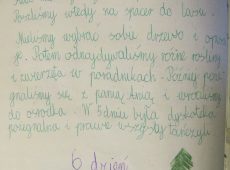 Poszliśmy wtedy na spacer do lasu.
Mieliśmy wybrać sobie drzewo i
Potem odnajdywaliśmy różne rośliny
i zwierzęta w poradnikach. Później poże
gnaliśmy się z panią Anią i wróciliśmy
do ośrodka. W 5 dniu była dyskoteka
pożegnalna i prawie wszyscy tańczyli
6 dzień